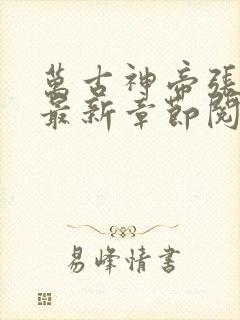 萬古神帝張
最新章節閱
易峰情書